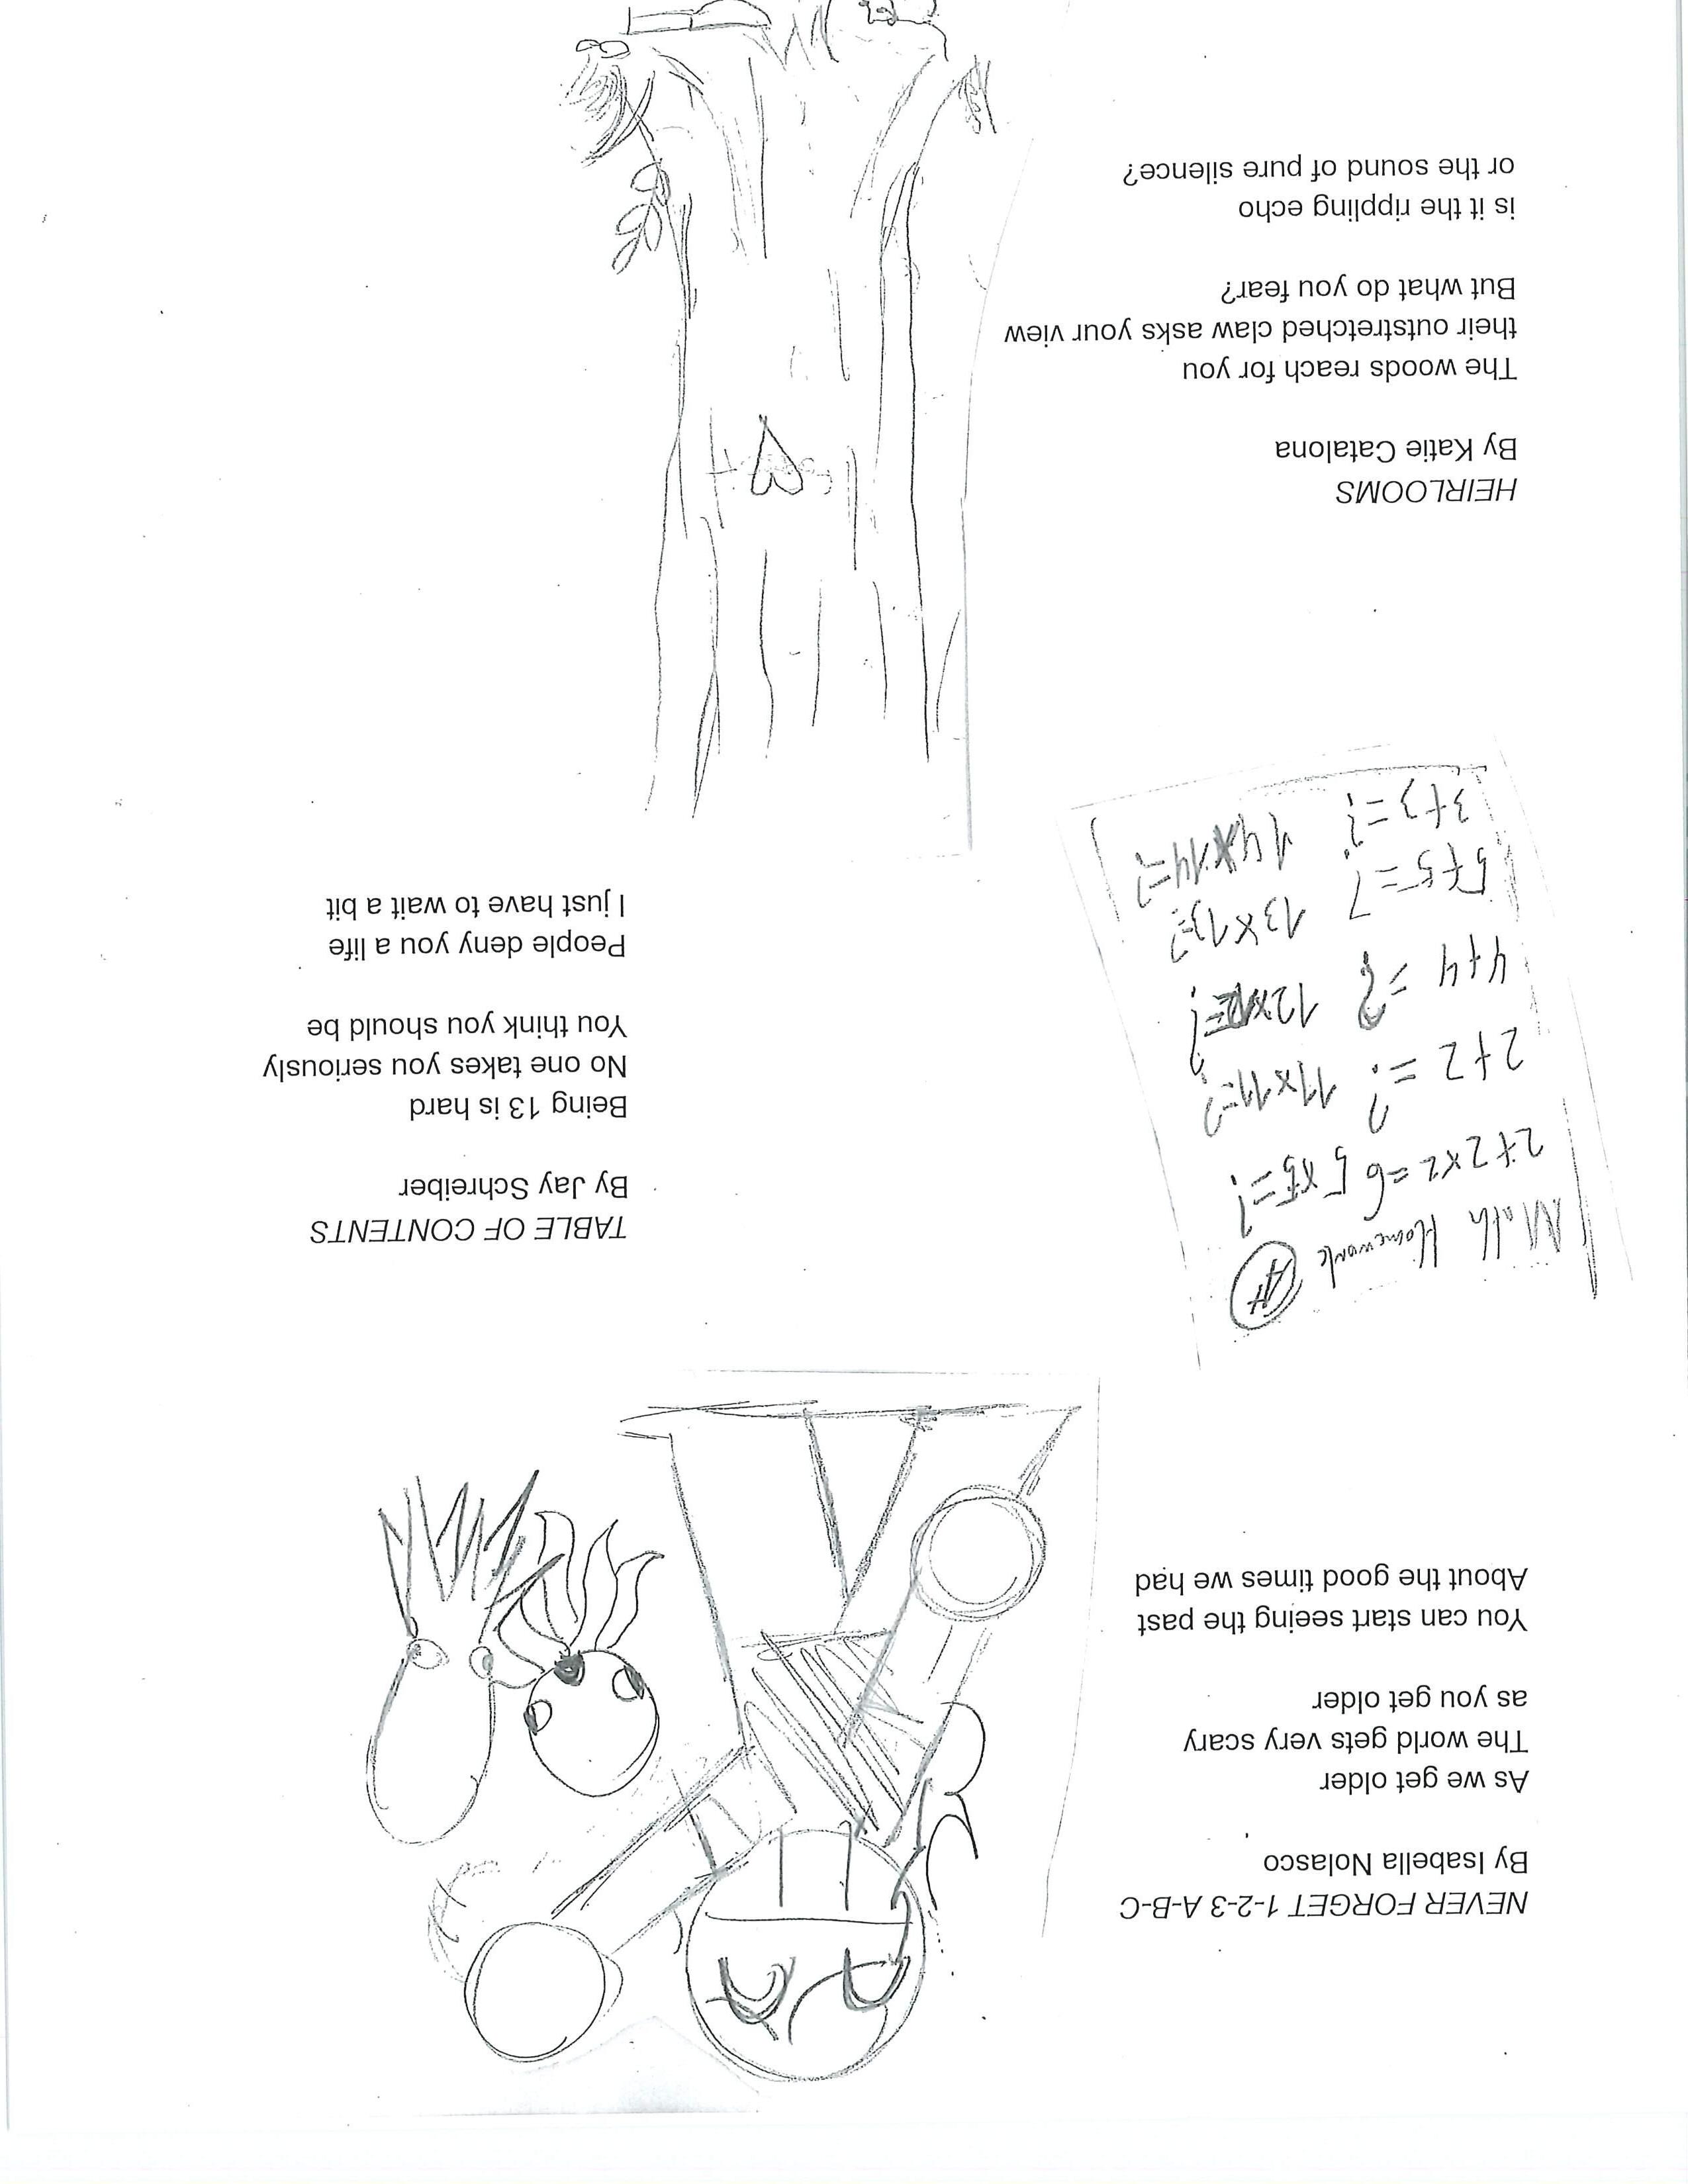 NEVER FORGET 1-2-3 A-B-C
By Isabella Nolasco
As we get older
The world gets very scary
as you get older
You can start seeing the past
About the good times we had
Math Homework A+
2+2x2=6 5x5=?
2+2=? 11x11=?
4+4=? 12x12=?
5+5=? 13x13=?
3+3=? 14x14=?
TABLE OF CONTENTS
By Jay Schreiber
Being 13 is hard
No one takes you seriously
You think you should be
People deny you a life
I just have to wait a bit
HEIRLOOMS
By Katie Catalona
The woods reach for you
their outstretched claw asks your view
But what do you fear?
is it the rippling echo
or the sound of pure silence?